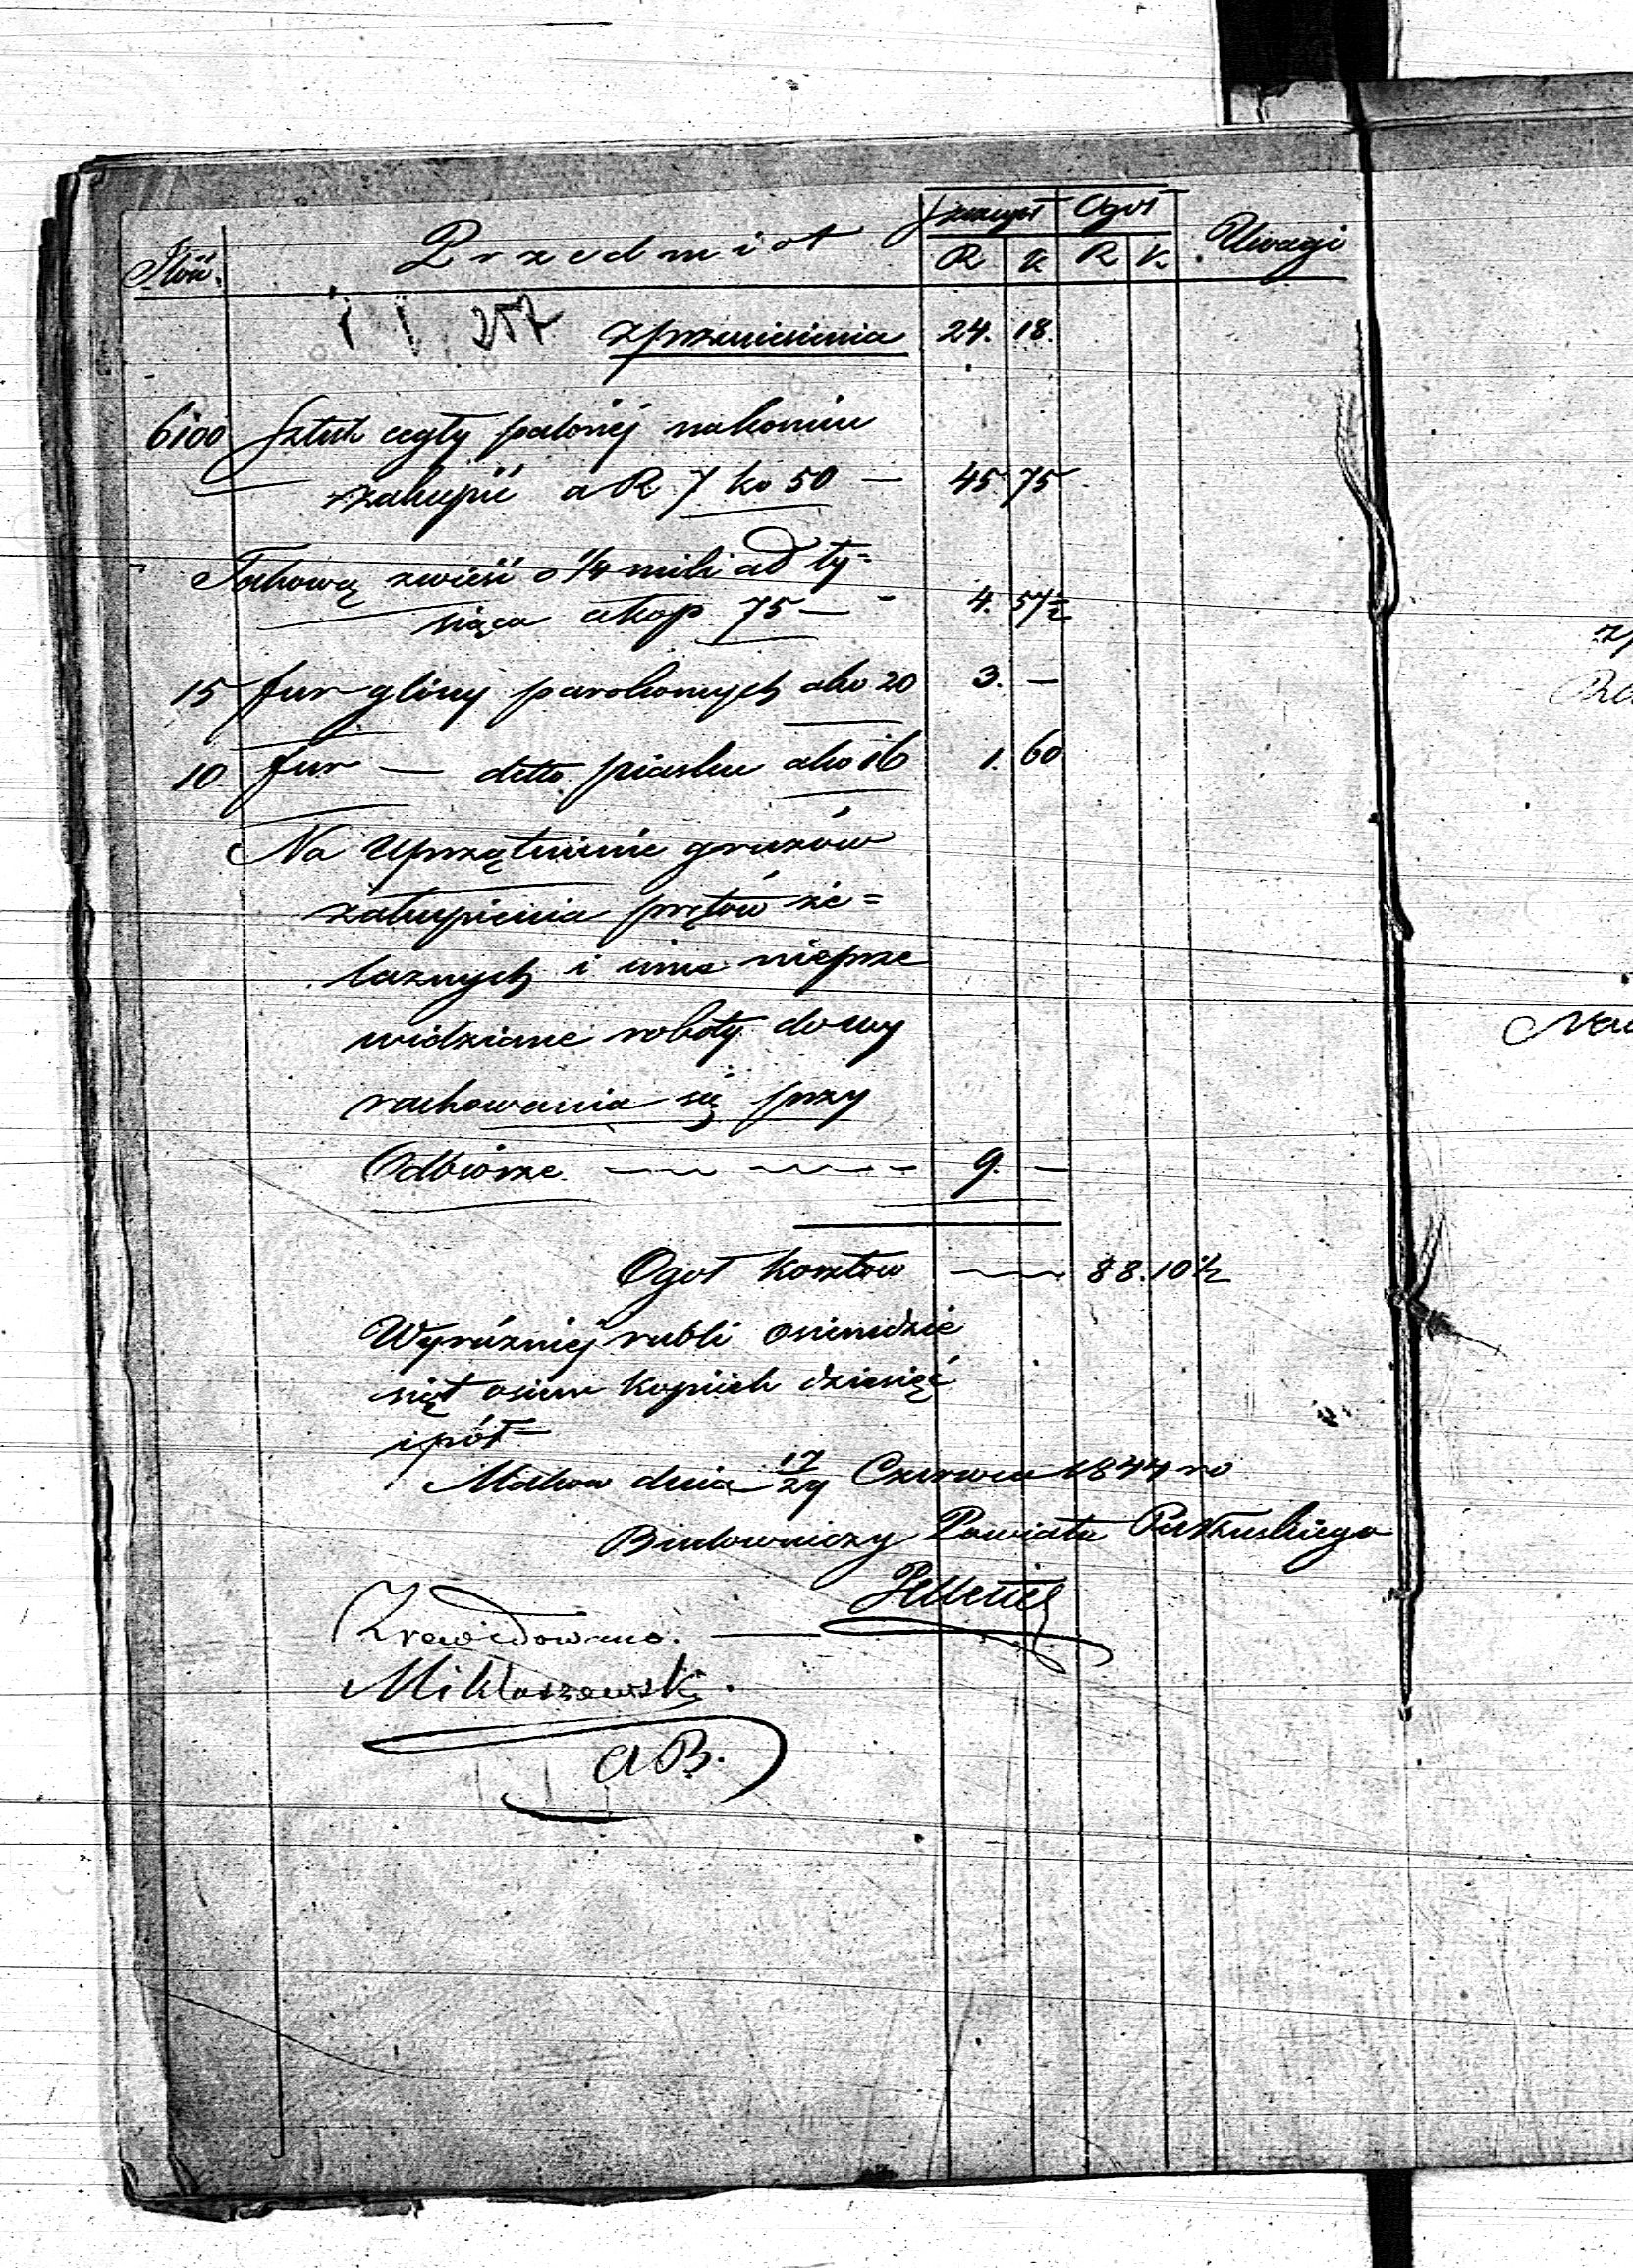 Ilość. Przedmiot Szczegół Ogół Uwagi
R K R K
257 z przeniesienia 24. 18.
6100 Sztuk cegły palonéj na komin
zakupić a R 7 ko 50 — 45 75
Takową zwieść o 1/4 mili od ty=
siąca a kop 75 — 4. 57 1/2
15 fur gliny parokonnych a ko 20 3. —
10 fur — detto piasku a ko 16 1. 60
Na uprzątnienie gruzów
zakupienia prętów że=
laznych i inne nieprze
widziane roboty do wy
rachowania się przy
Odbiorze — 9. —
Ogół kosztów — 88. 10 1/2
Wyraźniej rubli osiemdzie
siąt osiem kopiiek dziesięć
i pół
Maków dnia 17/29 Czerwca 1844 ro
Budowniczy Powiatu Pułtuskiego
Zrewidowano. —
Mikłaszewski.
AB.